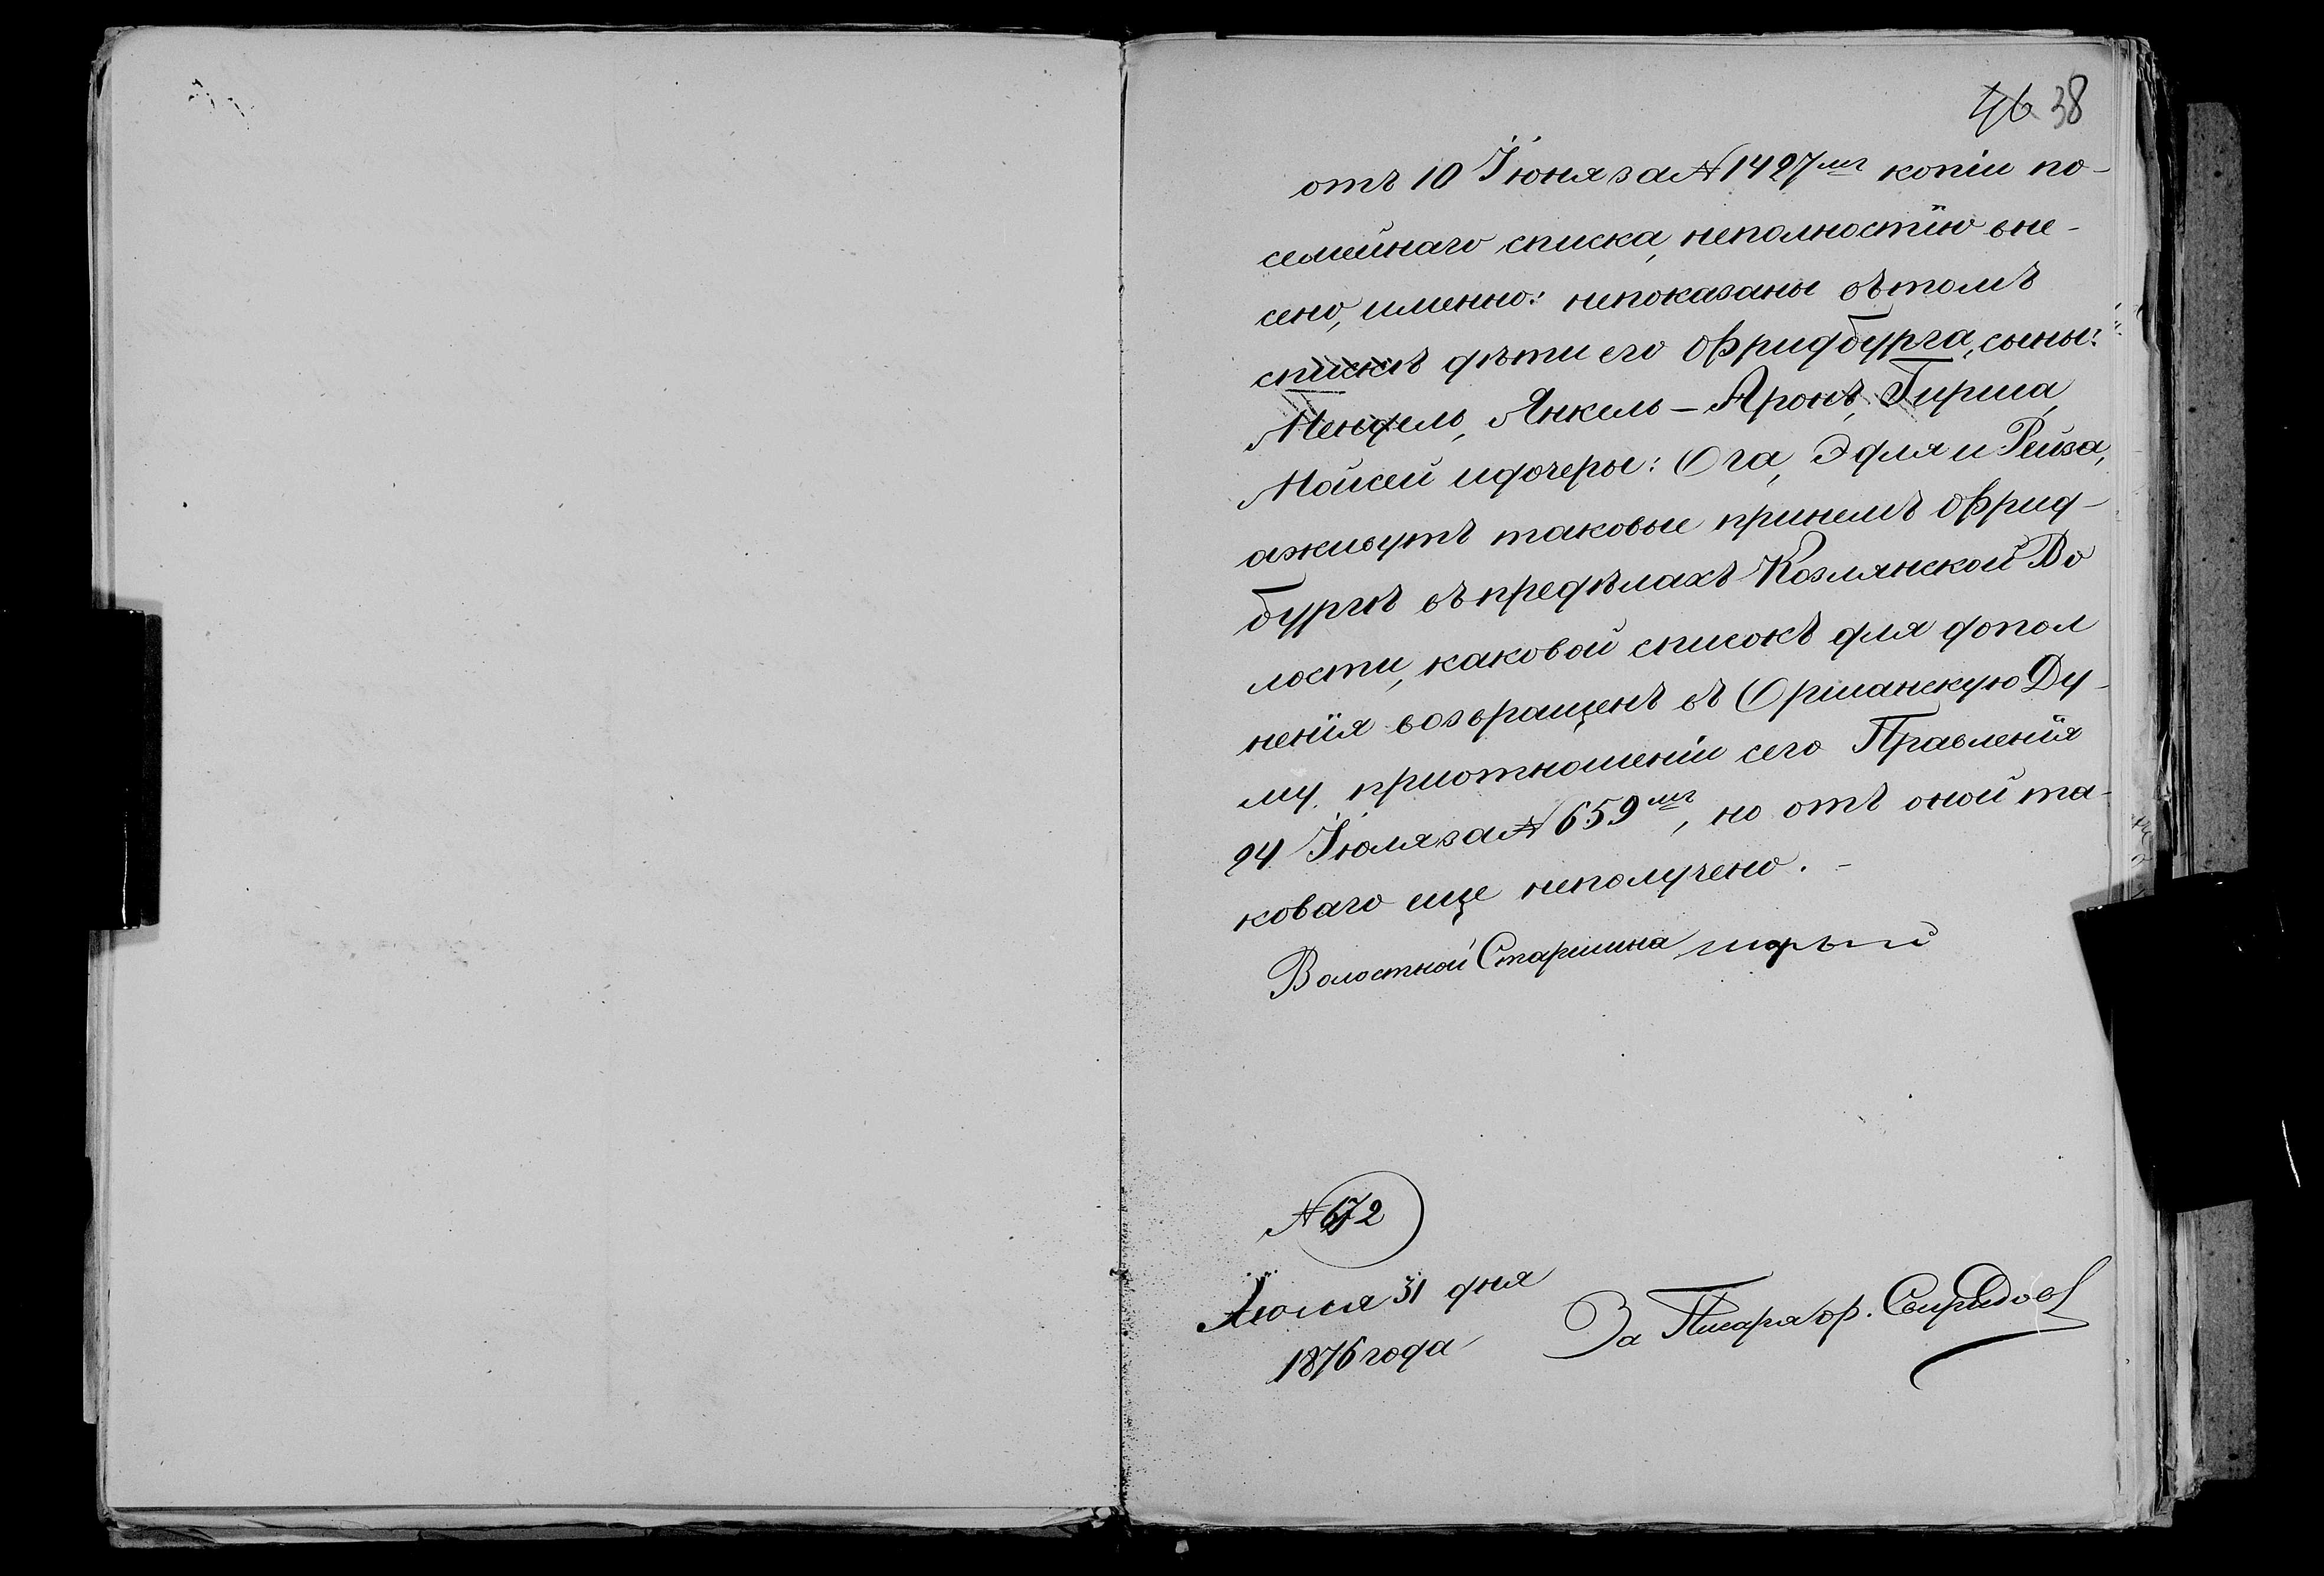 46 38
отъ 10 Іюня за № 1427мъ копіи по-
семейнаго списка, неполностію вне-
сено, именно: непоказаны въ томъ
спискѣ дѣти его Фридбурга, сыны:
Мендель, Янкель-Аронъ, Гирша,
Мойсей и дочеры: Ога, Эдля и Рейза,
а живутъ таковые при немъ Фрид-
бургѣ въ предѣлахъ Козлянской Во
лости, каковой списокъ для допол
ненія возвращенъ въ Оршанскую Ду-
му, при отношеніи сего Правленія
24 Іюля за № 659мъ, но отъ оной та-
коваго еще неполучено. -
Волостной Старшина
№ 672
Іюля 31 дня
1876 года
За Писаря Ор. Свиридовъ